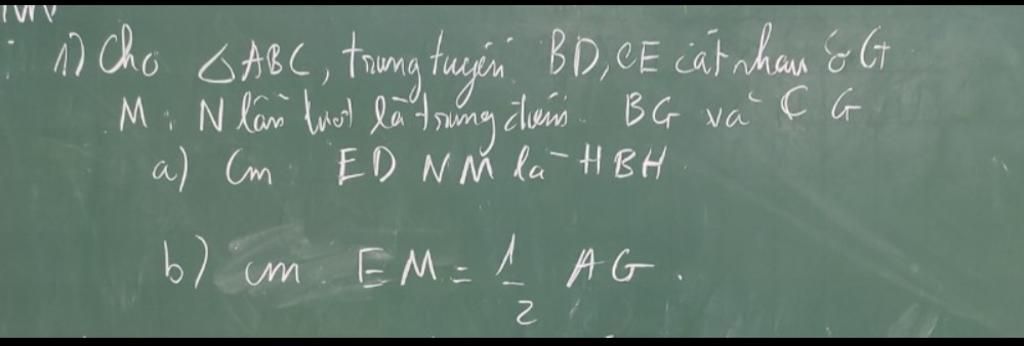 1) Cho △ABC, trung tuyến BD, CE cắt nhau ở G
M, N lần lượt là trung điểm BG và CG
a) Cm EDNM là HBH
b) cm EM = 1/2 AG.